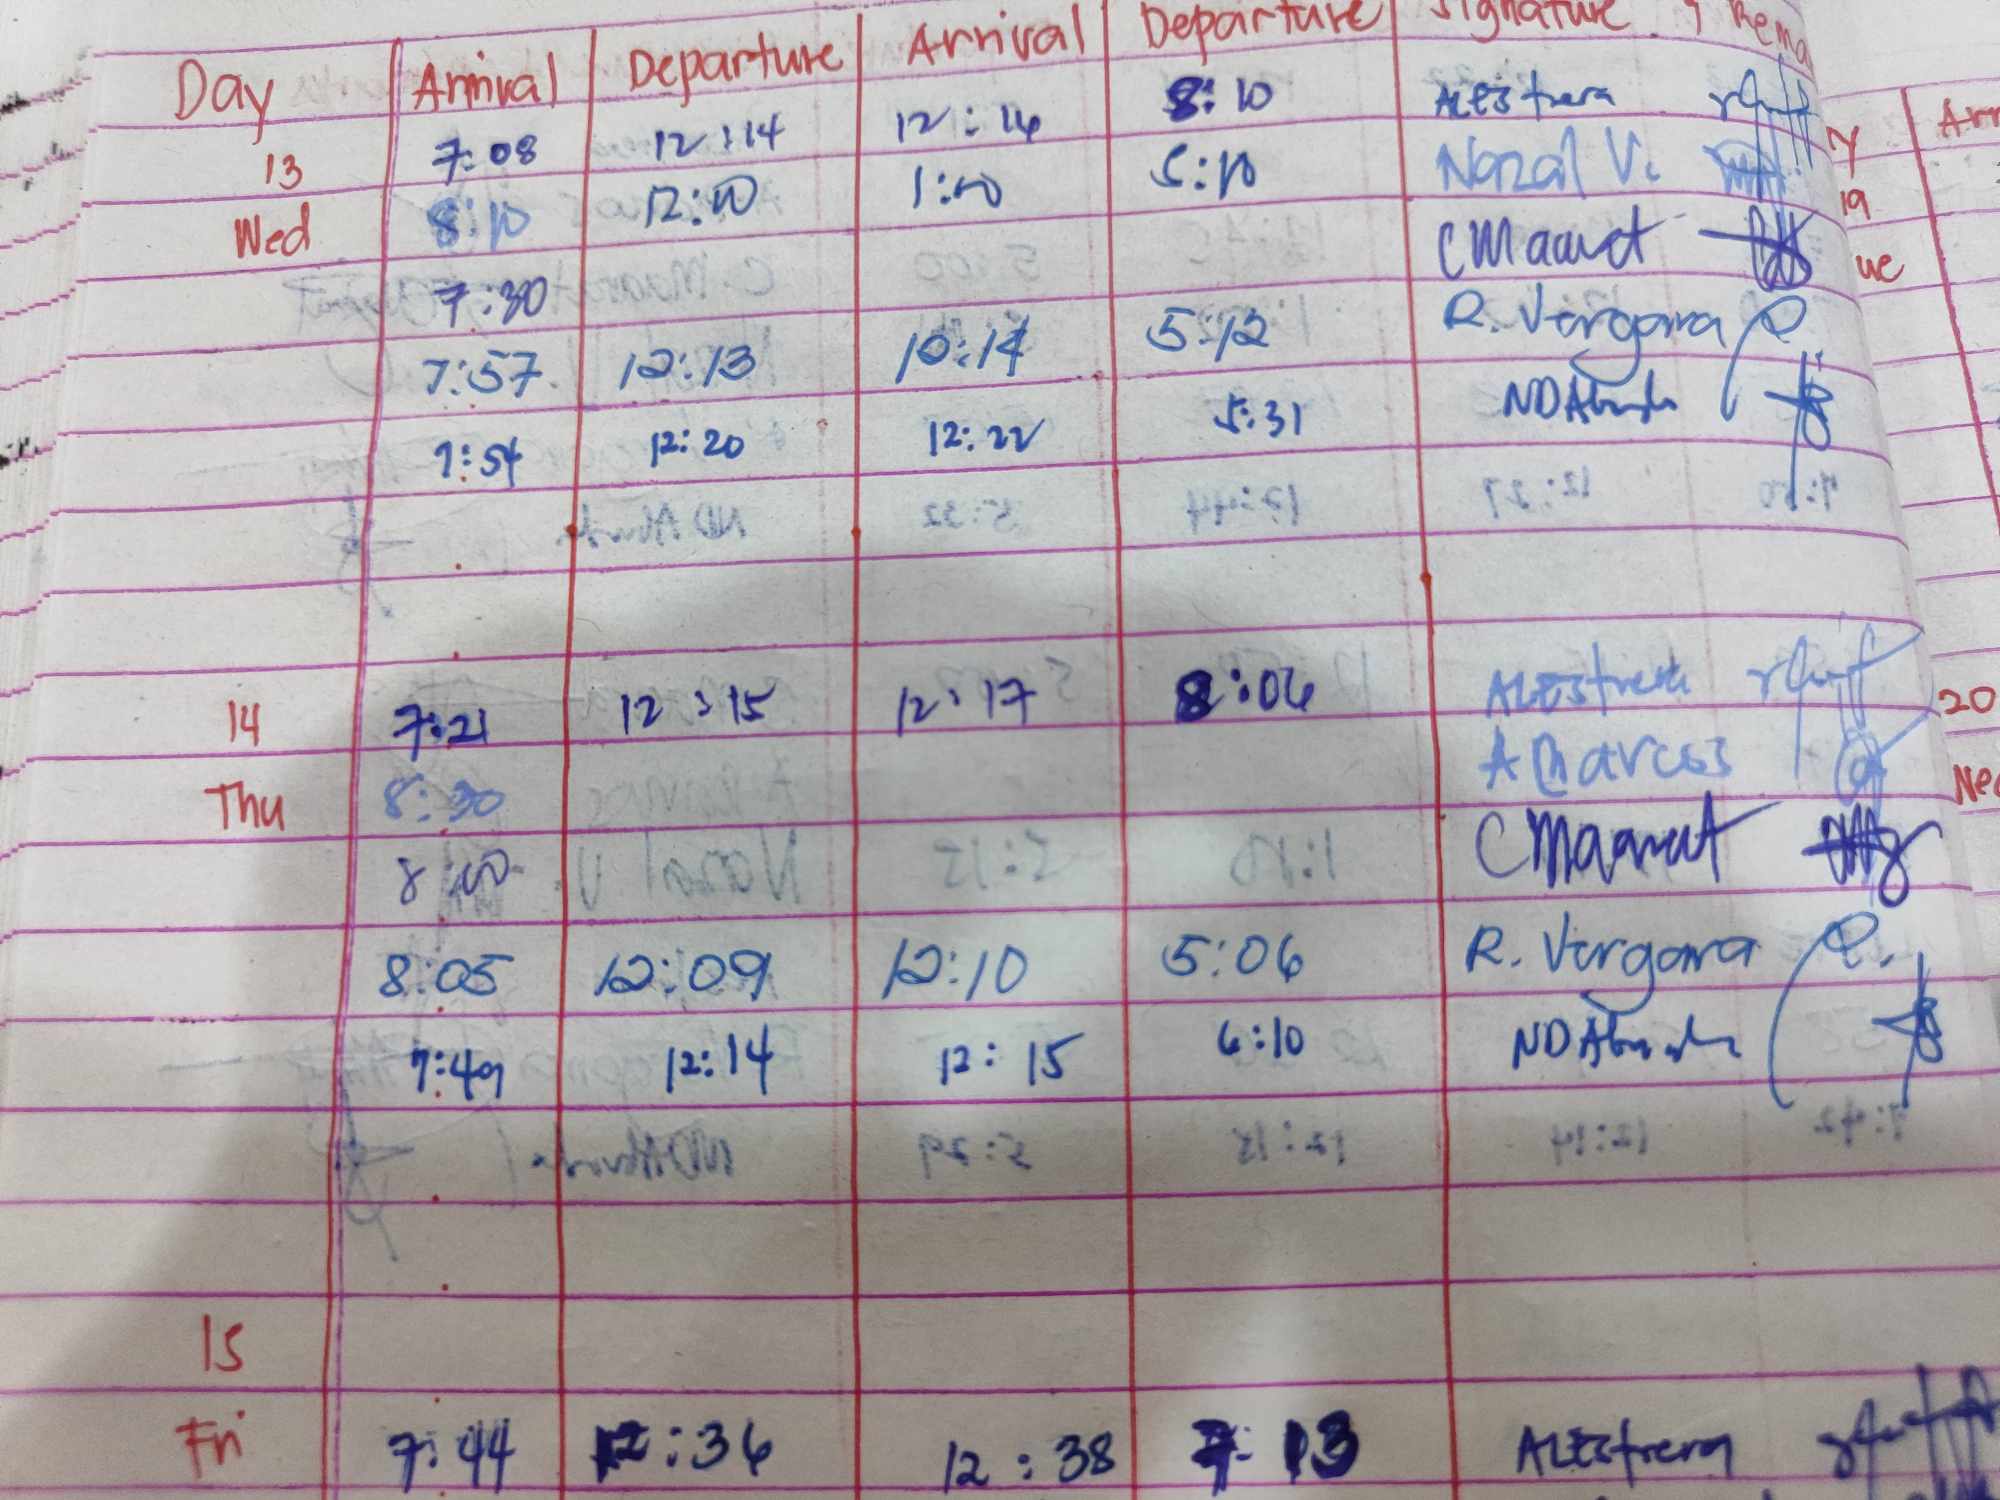 Day Arrival Departure Arrival Departure Signature
13 7:08 12:14 12:16 8:10 ALEstrera
Wed 8:10 12:10 1:00 5:10 Nazal V.
7:30 C Maaset
7:57 12:13 12:14 5:12 R. Vergara
7:54 12:20 12:22 5:31 ND
14 7:21 12:15 12:17 8:06 ALEstrera
Thu 8:30 A Marcos
8:00 C
8:05 12:09 12:10 5:06 R. Vergara
7:49 12:14 12:15 6:10 ND
15
Fri 7:44 12:36 12:38 7:13 ALEstrera
19
20